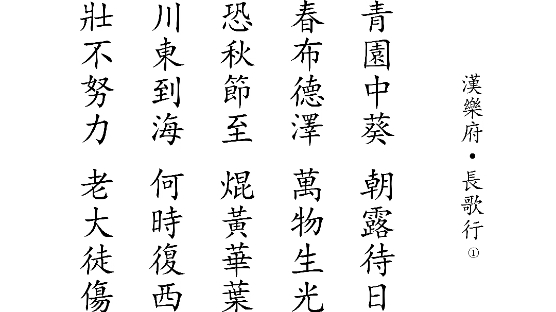 漢樂府•長歌行①
青園中葵 朝露待日
春布德澤 萬物生光
恐秋節至 焜黃華葉
川東到海 何時復西
壯不努力 老大徒傷